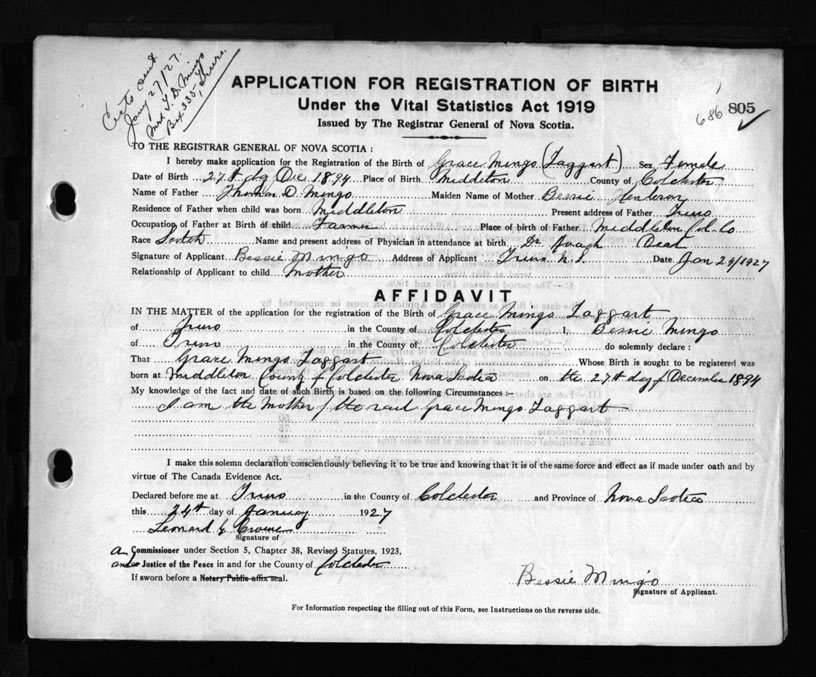 Certs sent
Jany 27/27.
Mrs T. D. Mingo
Box 335, Truro.
APPLICATION FOR REGISTRATION OF BIRTH
Under the Vital Statistics Act 1919
Issued by The Registrar General of Nova Scotia.
686 805
TO THE REGISTRAR GENERAL OF NOVA SCOTIA :
I hereby make application for the Registration of the Birth of Grace Mingo (Taggart) Sex Female
Date of Birth 27th dg Dec 1894 Place of Birth Middleton County of Colchester
Name of Father Thomas D. Mingo Maiden Name of Mother Bessie Henderson
Residence of Father when child was born Middleton Present address of Father Truro
Occupation of Father at Birth of child Farmer Place of birth of Father Middleton Col. Co.
Race Scotch Name and present address of Physician in attendance at birth Dr Dead
Signature of Applicant Bessie Mingo Address of Applicant Truro N.S. Date Jan 24/1927
Relationship of Applicant to child Mother
AFFIDAVIT
IN THE MATTER of the application for the registration of the Birth of Grace Mingo Taggart
of Truro in the County of Colchester I, Bessie Mingo
of Truro in the County of Colchester do solemnly declare :
That Grace Mingo Taggart Whose Birth is sought to be registered was
born at Middleton County of Colchester Nova Scotia on the 27th day of December 1894
My knowledge of the fact and date of such Birth is based on the following Circumstances :-
I am the Mother of the said Grace Mingo Taggart
I make this solemn declaration conscientiously believing it to be true and knowing that it is of the same force and effect as if made under oath and by
virtue of The Canada Evidence Act.
Declared before me at Truro in the County of Colchester and Province of Nova Scotia
this 24th day of January 1927
Leonard
Signature of
A Commissioner under Section 5, Chapter 38, Revised Statutes, 1923.
or Justice of the Peace in and for the County of Colchester
If sworn before a Notary Public affix seal.
Bessie Mingo
Signature of Applicant.
For Information respecting the filling out of this Form, see Instructions on the reverse side.